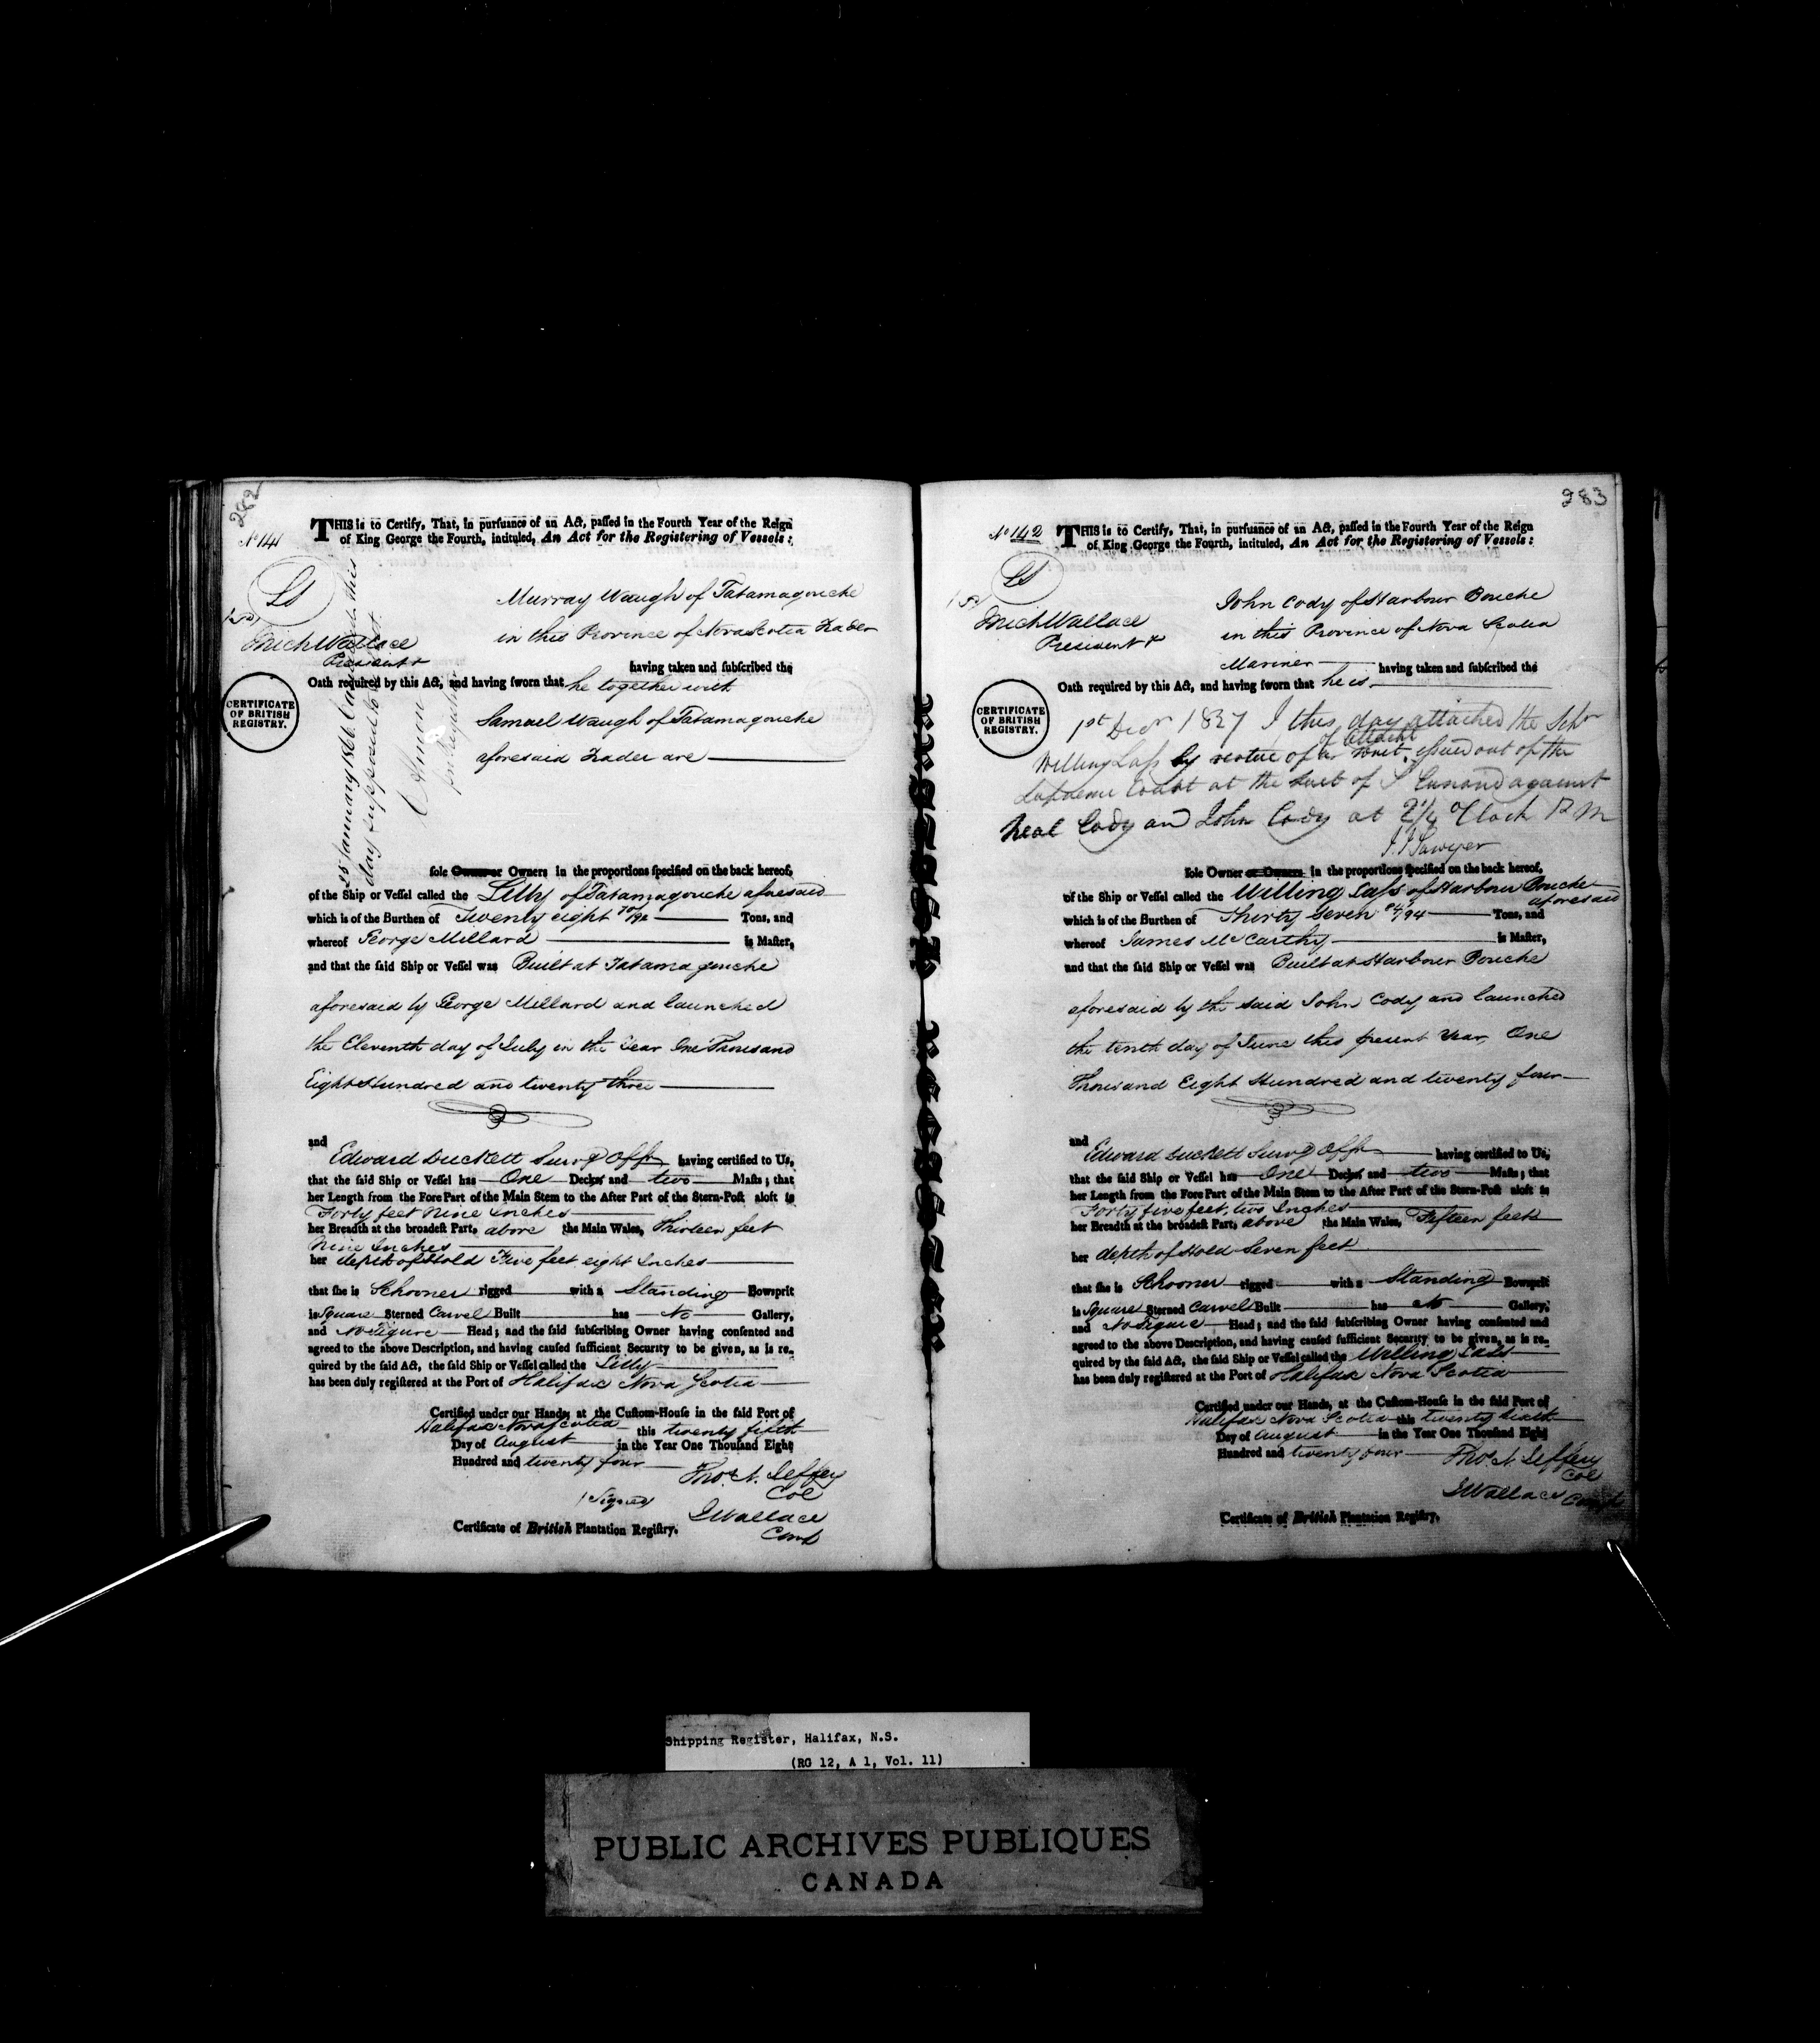 282
No 141
THIS is to Certify, That, in purſuance of an Act, paſſed in the Fourth Year of the Reign
of King George the Fourth, intituled, An Act for the Registering of Vessels:
LS
Murray Waugh of Tatamagouche
in this Province of Nova Scotia Trader
Mich Wallace
President
having taken and ſubſcribed the
Oath required by this Act, and having ſworn that he together with
CERTIFICATE
OF BRITISH
REGISTRY.
Samuel Waugh of Tatamagouche
aforesaid Trader are
25 January 1866 this
day supposed to
ſole Owner or Owners in the proportions ſpecified on the back hereof,
of the Ship or Veſſel called the Lilly of Tatamagouche aforesaid
which is of the Burthen of Twenty eight Tons, and
whereof George Millard is Maſter,
and that the ſaid Ship or Veſſel was Built at Tatamagouche
aforesaid by George Millard and launched
the Eleventh day of July in the Year One Thousand
Eight Hundred and twenty three
and
Edward Duckett Survg Offr having certified to Us,
that the ſaid Ship or Veſſel has One Decks and two Maſts; that
her Length from the Fore Part of the Main Stem to the After Part of the Stern-Poſt aloft is
Forty feet Nine Inches
her Breadth at the broadeſt Part, above the Main Wales, Thirteen feet
Nine Inches
her depth of Hold Five feet eight Inches
that ſhe is Schooner rigged with a Standing Bowsprit
is Square Sterned Carvel Built has No Gallery,
and No Figure Head; and the ſaid ſubſcribing Owner having conſented and
agreed to the above Deſcription, and having cauſed ſufficient Security to be given, as is re-
quired by the ſaid Act, the ſaid Ship or Veſſel called the Lilly
has been duly regiſtered at the Port of Halifax Nova Scotia
Certified under our Hands, at the Cuſtom-Houſe in the ſaid Port of
Halifax Nova Scotia this twenty fifth
Day of August in the Year One Thouſand Eight
Hundred and twenty four
Thos N. Jeffery
Col
Signed
J Wallace
Comt
Certificate of British Plantation Regiſtry.
283
No 142
THIS is to Certify, That, in purſuance of an Act, paſſed in the Fourth Year of the Reign
of King George the Fourth, intituled, An Act for the Registering of Vessels:
LS
John Cody of Harbour Bouche
in this Province of Nova Scotia
Mich Wallace
President
Mariner having taken and ſubſcribed the
Oath required by this Act, and having ſworn that he is
CERTIFICATE
OF BRITISH
REGISTRY.
1st Decr 1827 I this day attached the Schr
Willing Lass by virtue of a writ of attacht issued out of the
Supreme Court at the suit of S Cunard against
Neal Cody and John Cody at 2 1/4 oClock P M
J J Sawyer
ſole Owner or Owners in the proportions ſpecified on the back hereof,
of the Ship or Veſſel called the Willing Lass of Harbour Bouche
aforesaid
which is of the Burthen of Thirty Seven 84/94 Tons, and
whereof James McCarthy is Maſter,
and that the ſaid Ship or Veſſel was Built at Harbour Bouche
aforesaid by the said John Cody and launched
the tenth day of June this present Year, One
Thousand Eight Hundred and twenty four
and
Edward Duckett Survg Offr having certified to Us,
that the ſaid Ship or Veſſel has One Decks and two Maſts; that
her Length from the Fore Part of the Main Stem to the After Part of the Stern-Poſt aloft is
Forty five feet, two Inches
her Breadth at the broadeſt Part, above the Main Wales, Fifteen feet
her depth of Hold Seven feet
that ſhe is Schooner rigged with a Standing Bowsprit
is Square Sterned Carvel Built has No Gallery,
and No Figure Head; and the ſaid ſubſcribing Owner having conſented and
agreed to the above Deſcription, and having cauſed ſufficient Security to be given, as is re-
quired by the ſaid Act, the ſaid Ship or Veſſel called the Willing Lass
has been duly regiſtered at the Port of Halifax Nova Scotia
Certified under our Hands, at the Cuſtom-Houſe in the ſaid Port of
Halifax Nova Scotia this twenty sixth
Day of August in the Year One Thouſand Eight
Hundred and twenty four
Thos N. Jeffery
Col
J Wallace
Certificate of British Plantation Regiſtry.
Shipping Register, Halifax, N.S.
(RG 12, A 1, Vol. 11)
PUBLIC ARCHIVES PUBLIQUES
CANADA